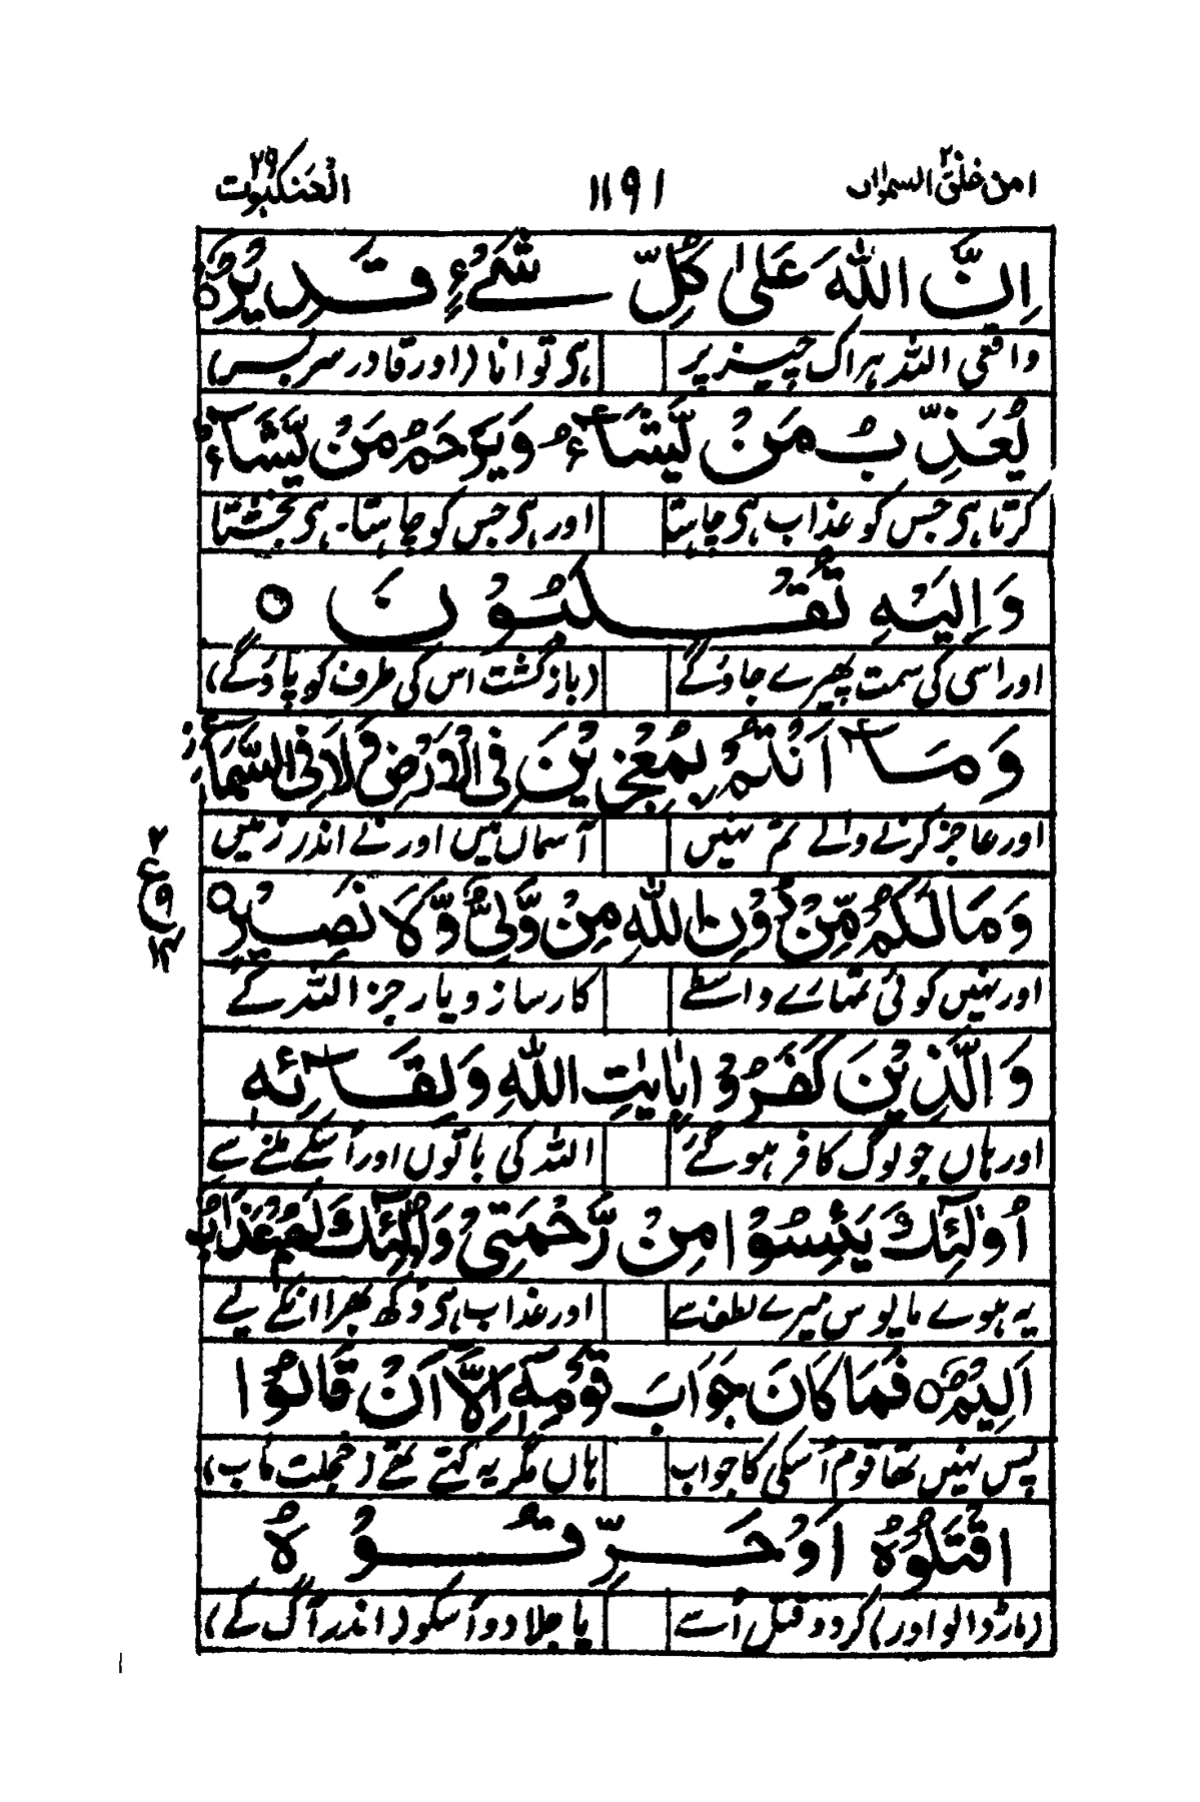 امن خلق السموات ۲۰ ۱۱۹۱ العنکبوت ۲۹
اِنَّ اللّٰهَ عَلٰی کُلِّ شَیْءٍ قَدِیْرٌ ○
واقعی اللہ ہر اک چیز پر ہے توانا (اور قادر سربسر)
یُعَذِّبُ مَنْ یَّشَآءُ وَیَرْحَمُ مَنْ یَّشَآءُ
کرتا ہے جس کو عذاب ہے چاہتا اور ہے جس کو چاہتا۔ ہے بخشتا
وَاِلَیْهِ تُقْلَبُوْنَ ○
اور اسی کی سمت پھیرے جاؤ گے (بازگشت اس کی طرف کو پاؤ گے)
وَمَآ اَنْتُمْ بِمُعْجِزِیْنَ فِی الْاَرْضِ وَلَا فِی السَّمَآءِ
اور عاجز کرنے والے تم نہیں آسماں میں اور نے اندر زمیں
وَمَا لَکُمْ مِّنْ دُوْنِ اللّٰهِ مِنْ وَّلِیٍّ وَّلَا نَصِیْرٍ ○
اور نہیں کوئی تمہارے واسطے کارساز و یار جز اللہ کے
۲ ع ۹ ۱۴
وَالَّذِیْنَ کَفَرُوْا بِاٰیٰتِ اللّٰهِ وَلِقَآئِهٖ
اور ہاں جو لوگ کافر ہو گئے اللہ کی باتوں اور اُسکے ملنے سے
اُولٰٓئِكَ یَئِسُوْا مِنْ رَّحْمَتِیْ وَاُولٰٓئِكَ لَهُمْ عَذَابٌ
یہ ہوے مایوس میرے لطف سے اور عذاب ہے دُکھ بھرا انکے لیے
اَلِیْمٌ ○ فَمَا کَانَ جَوَابَ قَوْمِهٖٓ اِلَّآ اَنْ قَالُوا
پس نہیں تھا قوم اُسکی کا جواب ہاں مگر یہ کہتے تھے (خجلت مآب)
اقْتُلُوْهُ اَوْ حَرِّقُوْهُ
(مار ڈالو اور) کردو قتل اُسے یا جلا دو اُسکو (اندر آگ کے)